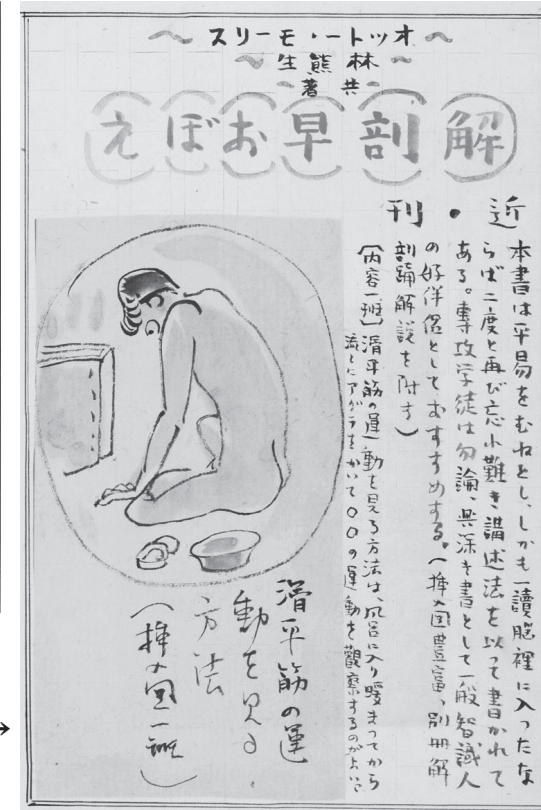 オットー・モーリス
林熊生
共著
解剖早おぼえ
近・刊
本書は平易をむねとし、しかも一讀脳裡に入ったな
らば二度と再び忘れ難き講述法を以って書かれて
ある。専攻学徒は勿論、興深き書として一般智識人
の好伴侶としておすすめする。(挿入図豊富、別冊解
剖踊解説を附す)
〔内容一班〕滑平筋の運動を見る方法は、風呂に入り暖まってから
流しにアグラをかいて〇〇の運動を観察するのがよい。
滑平筋の運
動を見る
方法
(挿入図一班)